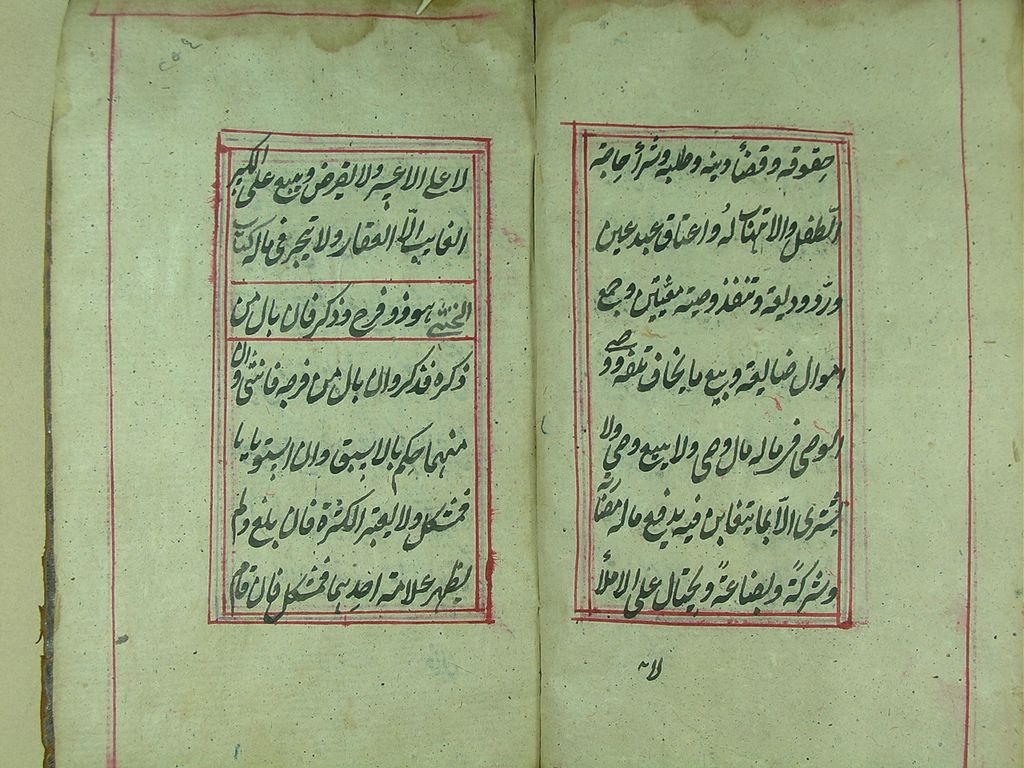 حقوقه وقضاء دينه وطلبه وشراء حاجة
الطفل والاتهاب له واعتاق عبد عين
ورد وديعة وتنفذ وصية معينين وجمع
اموال ضايعة وبيع ما يخاف تلفه ووصى
الوصى فى ماله مال وصى ولا يبيع وصى ولا
يشترى الا بما يتغابن فيه يدفع ماله مضاربة
وشركة وبضاعة ويحتال على الاملأ
لا
لا على الاعسر ولا يقرض ويبيع على الكبير
الغايب الا العقار ولا يتجر فى ماله كتاب
الخنثى هو ذو فرج وذكر فان بال من
ذكره فذكر وان بال من فرجه فانثى وان
منهما حكم بالاسبق وان استويا
فمشكل ولا يعتبر الكثرة فان بلغ ولم
يظهر علامة احديهما فمشكل فان قام